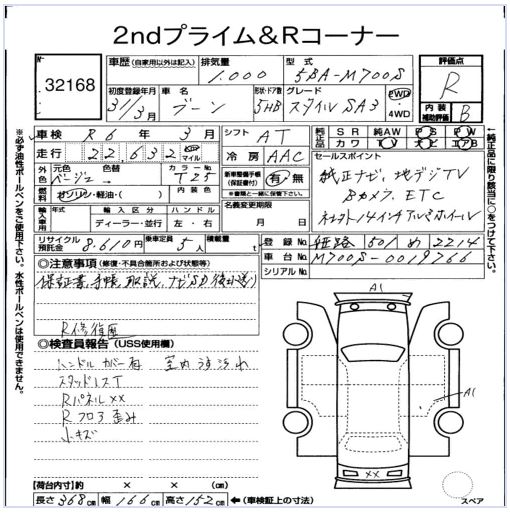 2ndプライム&Rコーナー
32168
車歴 (自家用以外は記入)
排気量
1,000
型式
5BA-M700S
評価点
R
初度登録年月
31/3月
車名
ブーン
形状・ドア数
5HB
グレード
スタイル SA3
FWD
・
4WD
内装
補助評価
B
車検 R6 年 3月
シフト
AT
純正品
SR 純AW PS PW
カワ TV ナビ エアB
走行 22,632 km マイル
冷房
AAC
セールスポイント
純正ナビ、地デジTV
Bカメラ、ETC
社外14インチアルミホイール
外色
元色
ベージュ
色替
カラーNo.
T25
新車整備手帳
(保証書付)
有・無
燃料
ガソリン・軽油・( )
内装色
一複数記載禁止一
輸入車用
年式
輸入区分
ディーラー・並行
ハンドル
左・右
名義変更期限
月 日
リサイクル預託金
8,610円
乗車定員
5人
積載量
t
登録No
姫路 501 め 2214
車台No
M700S-0019766
シリアルNo
◎注意事項 (修復・不具合箇所および状態等)
保証書、手帳、取説、ナビSD後日送り
R修復歴
◎検査員報告 (USS使用欄)
ハンドルカバー有 室内うす汚れ
スタッドレスT
RパネルXX
Rフロア歪み
小キズ
A1
A1
XX
スペア
【荷台内寸】 × × (cm)
長さ 368cm 幅 166cm 高さ 152cm ←(車検証上の寸法)
※必ず油性ボールペンをご使用下さい。水性ボールペンは使用できません。
←純正品に限り該当に○をつけて下さい。